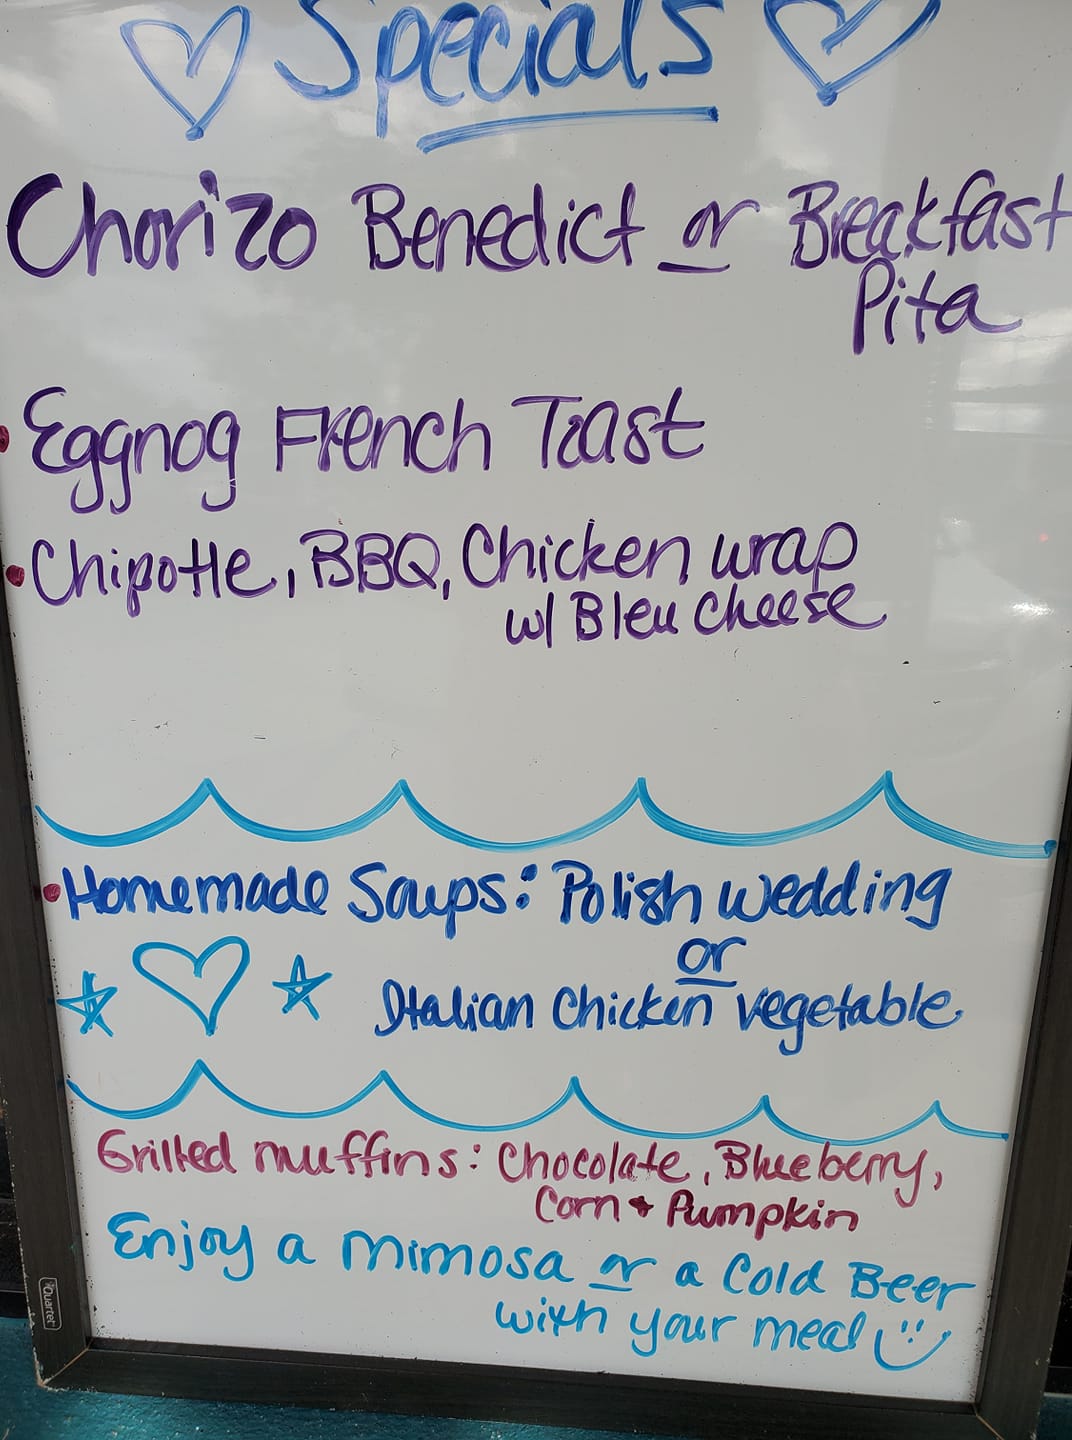 Specials
Chorizo Benedict or Breakfast
Pita
• Eggnog French Toast
• Chipotle, BBQ, Chicken wrap
w/ Bleu Cheese
• Homemade Soups: Polish Wedding
or
Italian Chicken vegetable
Grilled muffins: Chocolate, Blueberry,
Corn + Pumpkin
Enjoy a Mimosa or a Cold Beer
with your meal
Quartet